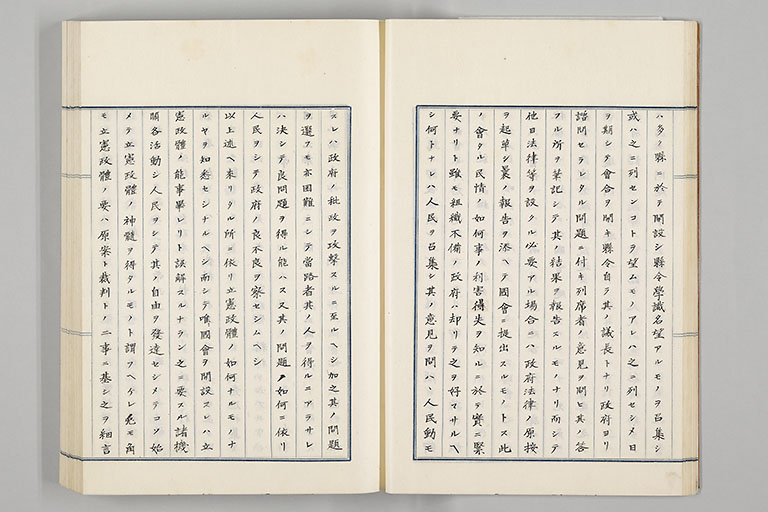 ハ多ク縣ニ於テ開設シ縣令學識名望アルモノヲ召集シ
或ハ之ニ列センコトヲ望ムモノアレハ之ニ列セシメ日
ヲ期シテ會合ヲ開キ縣令自ラ其ノ議長トナリ政府ヨリ
諮問セラレタル問題ニ付キ列席者ノ意見ヲ問ヒ其ノ答
フル所ヲ筆記シテ其ノ結果ヲ報告スルモノナリ而シテ
他日法律等ヲ設クル必要アル場合ニハ政府法律ノ原按
ヲ起草シ曩ノ報告ヲ添ヘテ國會ニ提出スルモノトス此
ノ會タル民情ノ如何事ノ利害得失ヲ知ルニ於テ實ニ緊
要ナリト雖モ組織不備ノ政府ハ却リテ之ヲ好マサルヘ
シ何トナレハ人民ヲ召集シ其ノ意見ヲ問ハヽ人民動モ
スレハ政府ノ秕政ヲ攻撃スルニ至ルヘシ加之其ノ問題
ヲ選フモ亦困難ニシテ當路者其ノ人ヲ得ルニアラサレ
ハ決シテ良問題ヲ得ル能ハス又其ノ問題ノ如何ニ依リ
人民ヲシテ政府ノ良不良ヲ察セシムヘシ
以上述ヘ來リタル所ニ依リ立憲政體ノ如何ナルモノナ
ルヤヲ知悉セシナルヘシ而シテ唯國會ヲ開設スレハ立
憲政體ノ能事畢レリト誤解スルナラン之ニ要スル諸機
關各活動シ人民ヲシテ其ノ自由ヲ發達セシメテコソ始
メテ立憲政體ノ神髓ヲ得タルモノト謂フヘケレ兎モ角
モ立憲政體ノ要ハ原案ト裁判トノ二事ニ基シ之ヲ細言